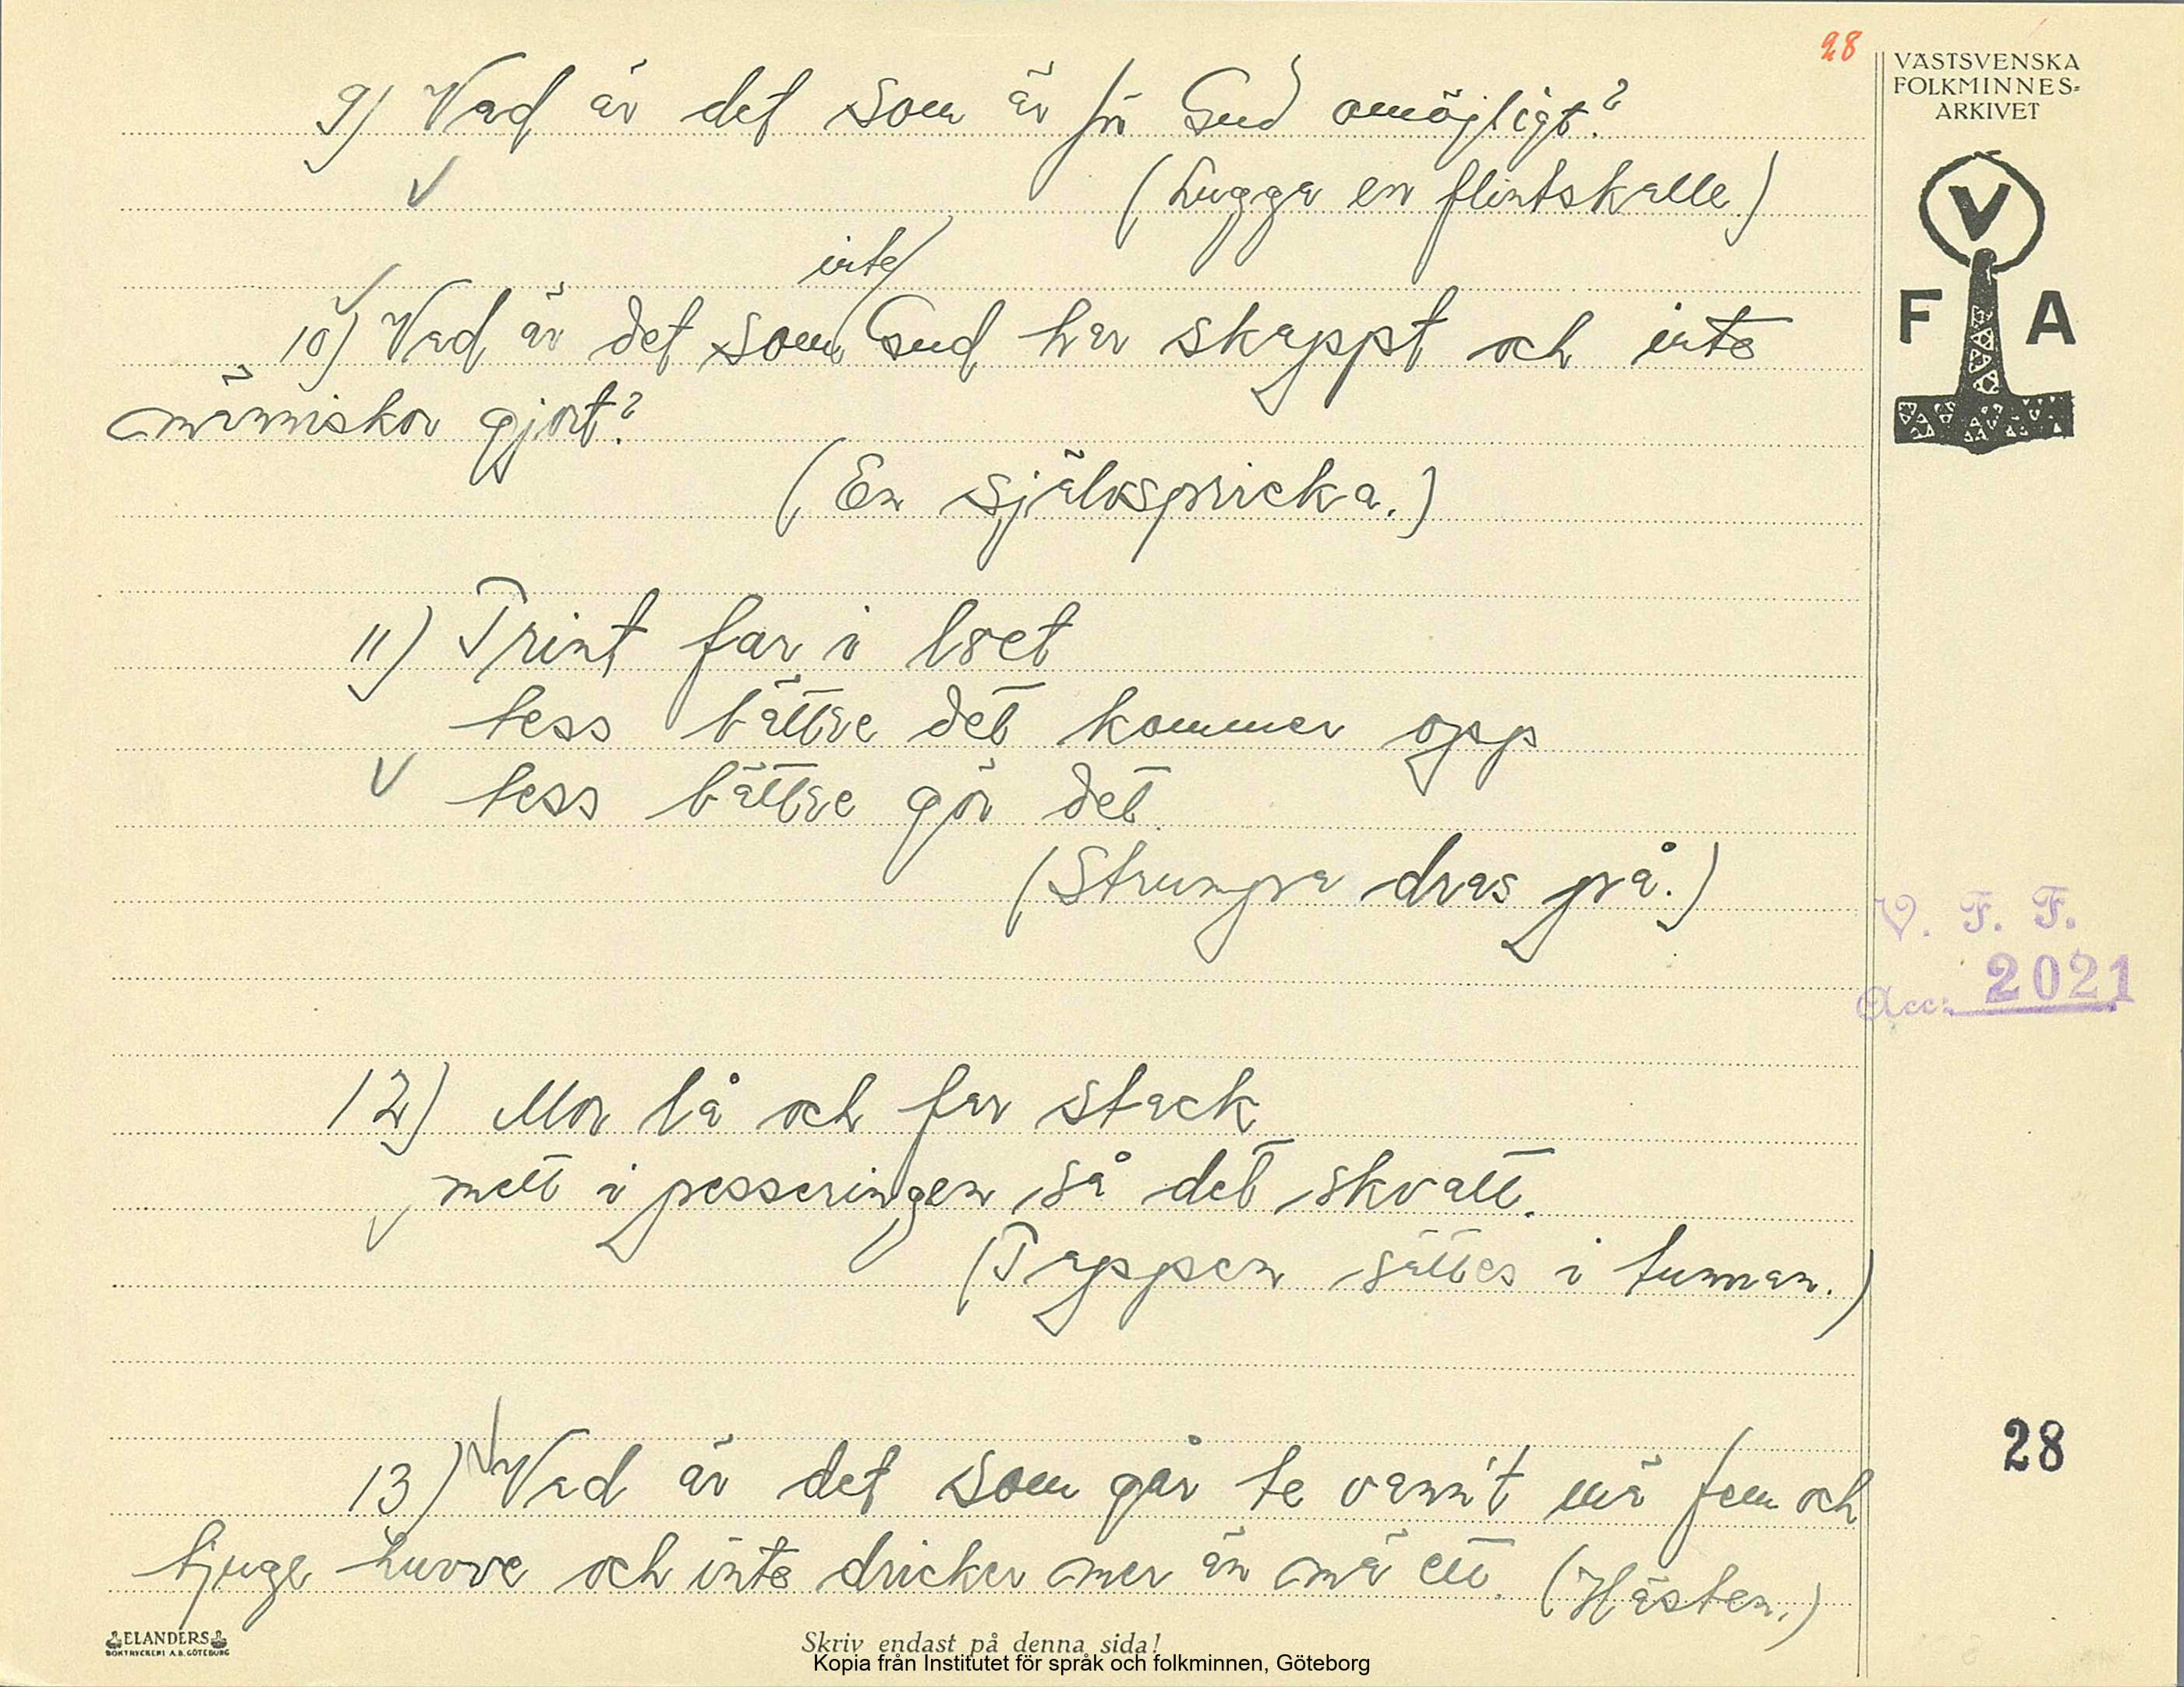 28
VÄSTSVENSKA
FOLKMINNES-
ARKIVET
V
F A
9) Vad är det som är för Gud omöjligt?
(Lugga en flintskalle)
inte
10) Vad är det som Gud har skappt och inte
människor gjort?
(En självspricka.)
11) Trint far i
tess bättre det kommer opp
tess bättre gör det
(Strumpa dras på.)
V. F. F.
Acc: 2021
12) Mor lå och far stack
mett i pesseringen så det skvatt.
(Tappen sättes i tunnan.)
28
13) Vad är det som går te vann't mä fem och
tjuge huvve och inte dricker mer än mä ett. (Hästen.)
ELANDERS
BOKTRYCKERI A.B. GÖTEBORG
Skriv endast på denna sida!
Kopia från Institutet för språk och folkminnen, Göteborg